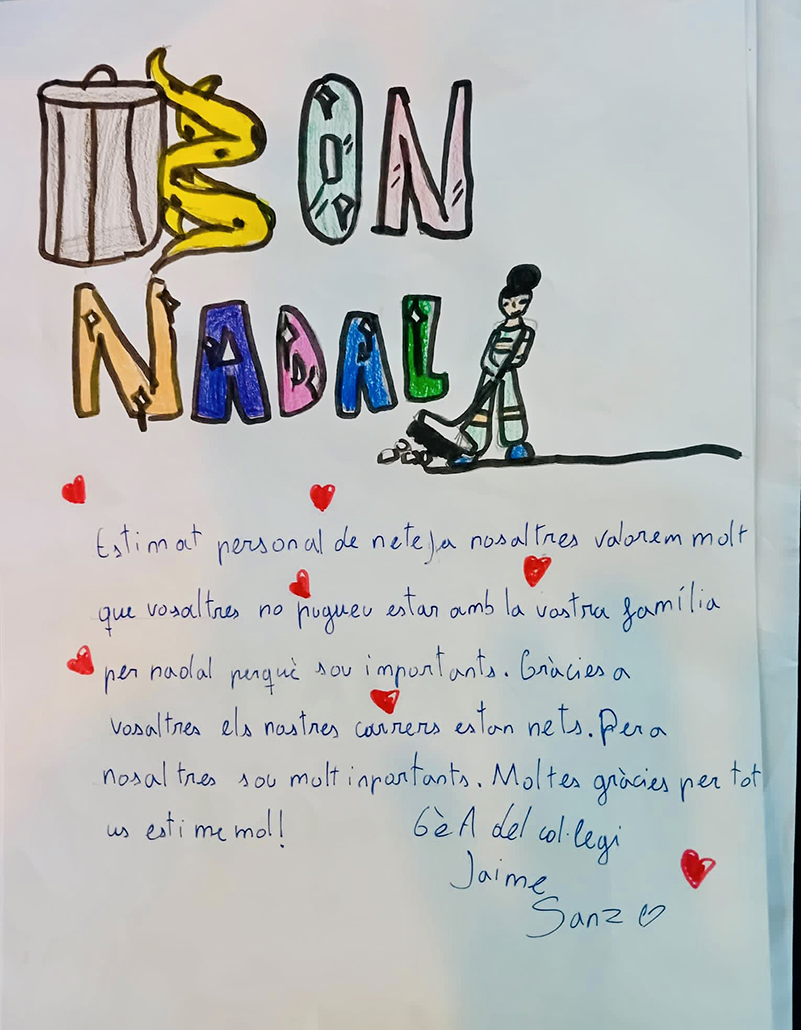 BON
NADAL
Estimat personal de neteja nosaltres valorem molt
que vosaltres no pugueu estar amb la vostra família
per nadal perquè sou importants. Gràcies a
vosaltres els nostres carrers estan nets. Per a
nosaltres sou molt inportants. Moltes gràcies per tot
us estimemol!
6è A del col·legi
Jaime
Sanz